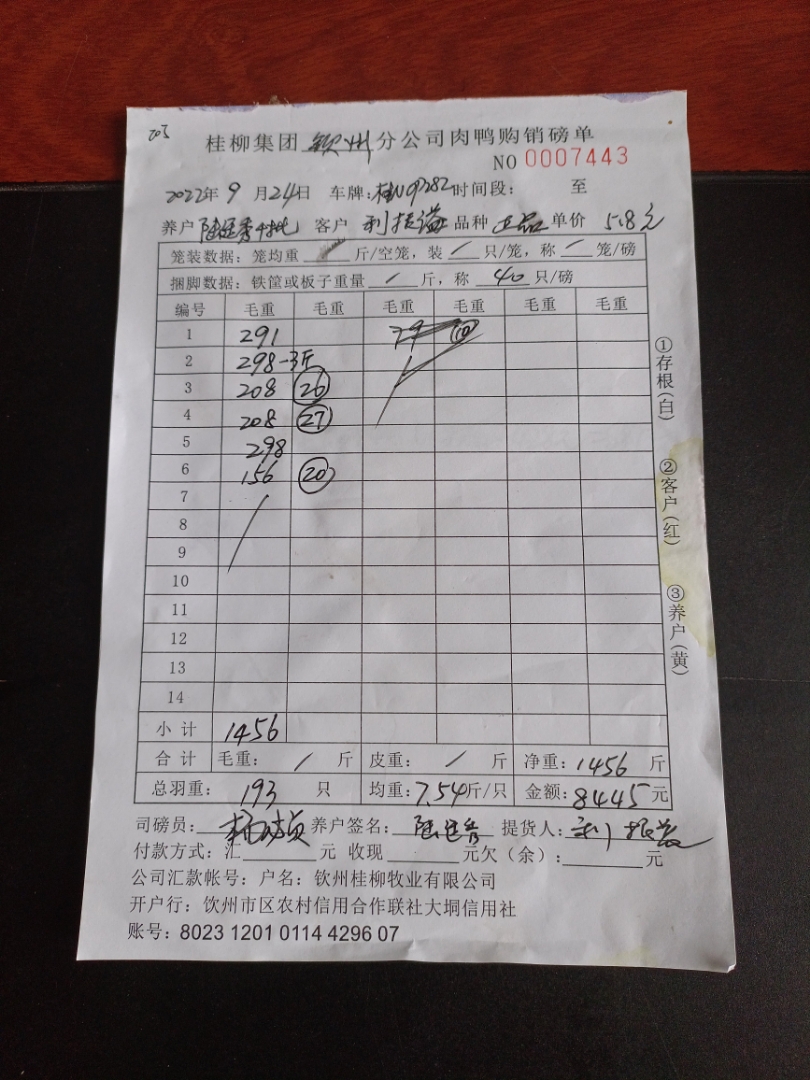 桂柳集团 钦州 分公司肉鸭购销磅单
NO 0007443
2022年 9 月 24日 车牌: 时间段: 至
养户 客户 品种 正品 单价 5.8元
笼装数据: 笼均重 / 斤/空笼, 装 / 只/笼, 称 / 笼/磅
捆脚数据: 铁筐或板子重量 / 斤, 称 40 只/磅
编号 毛重 毛重 毛重 毛重 毛重 毛重
1 291
2 298-3斤
3 208 26
4 208 27
5 298
6 156 20
7
8
9
10
11
12
13
14
小计 1456
合计 毛重: / 斤 皮重: / 斤 净重: 1456 斤
总羽重: 193 只 均重: 7.54斤/只 金额: 8445元
司磅员: 养户签名: 提货人:
付款方式: 汇 元 收现 元欠(余): 元
公司汇款帐号: 户名: 钦州桂柳牧业有限公司
开户行: 钦州市区农村信用合作联社大垌信用社
账号: 8023 1201 0114 4296 07
①存根(白)
②客户(红)
③养户(黄)